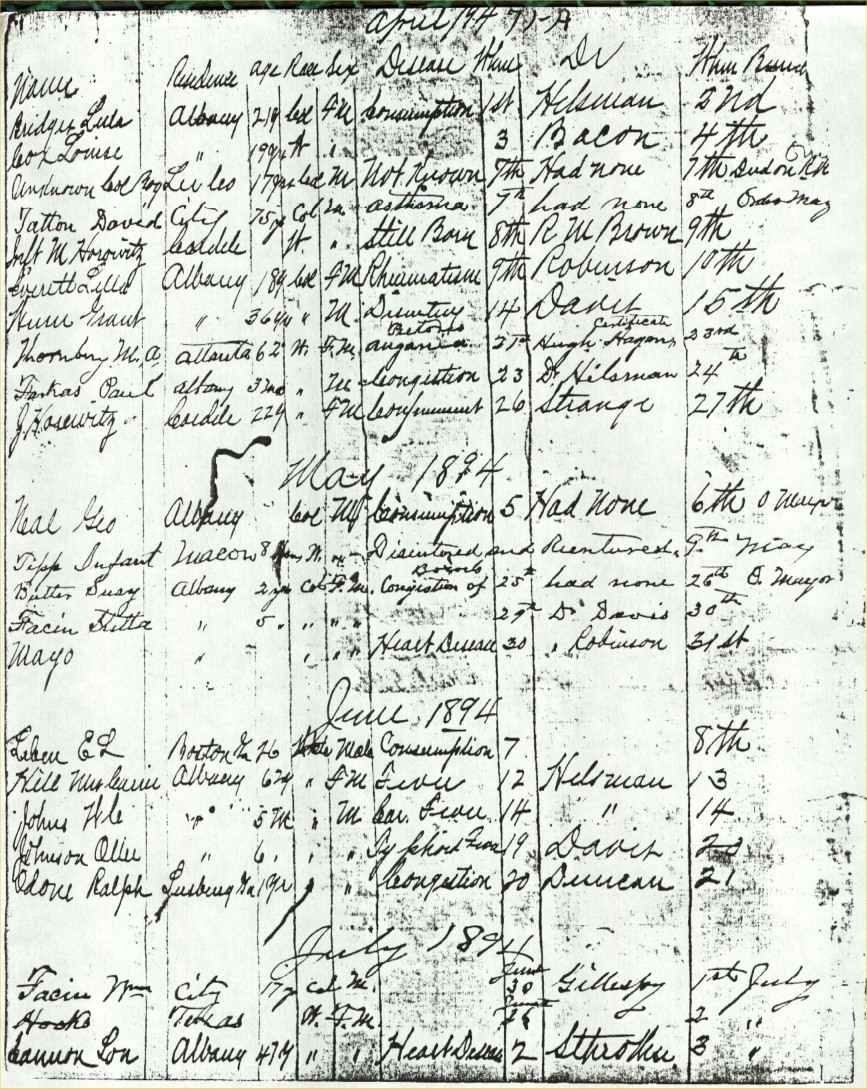 April 1894 71-A
Name Residence Age Race Sex Disease When Dr When Buried
Bridges Lula Albany 21y Col FM Consumption 1st Hilsman 2nd
Cox Louise " 19yr W " 3 Bacon 4th
Unknown Col Boy Lee Co 17yrs Col M Not Known 7th Had none 7th
Tatton David City 75yr Col M asthma 7th had none 8th Order May
Inft M. Horowitz Cordele W " Still Born 8th R M Brown 9th
Everett Lilla Albany 18y Col FM Rheumatism 9th Robinson 10th
Grant " 36yr " M 14 Davis 15th
Thornbury M. A. Atlanta 62 W. F.M. 21st Hugh Hagan Certificate 23rd
Farkas Paul Albany 3 mo " M Congestion 23 Dr Hilsman 24th
J Hosewitz Cordele 22y " FM Confinement 26 Strange 27th
May 1894
Neal Geo Albany Col M Consumption 5 Had None 6th O Mayor
Tipp Infant Macon 8 W. Disintered and Reintured. 9th May
Butler Susy Albany 2yr Col F.M. Congestion of Bowels 25th had none 26th O. Mayor
Facin Stella " 5 " " " 29th Dr Davis 30th
Mayo " " " Heart Disease 30 " Robinson 31st
June 1894
Leben E L Boston Ga 26 White Male Consumption 7 8th
Hill Mrs Albany 62y " FM Fever 12 Hilsman 13
Johns W C " 5 M " M Fever 14 " 14
Johnson Ollie " 6 " " " Typhoid Fever 19 Davis 20
Odone Ralph Leesburg Ga 1yr " " Congestion 20 Duncan 21
July 1894
Facin Wm City 17y Col M. June 30 Gillespy 1st July
Hocks Texas W. F.M. June 26 2 "
Cannon Lon Albany 47y " " Heart Disease 2 3 "